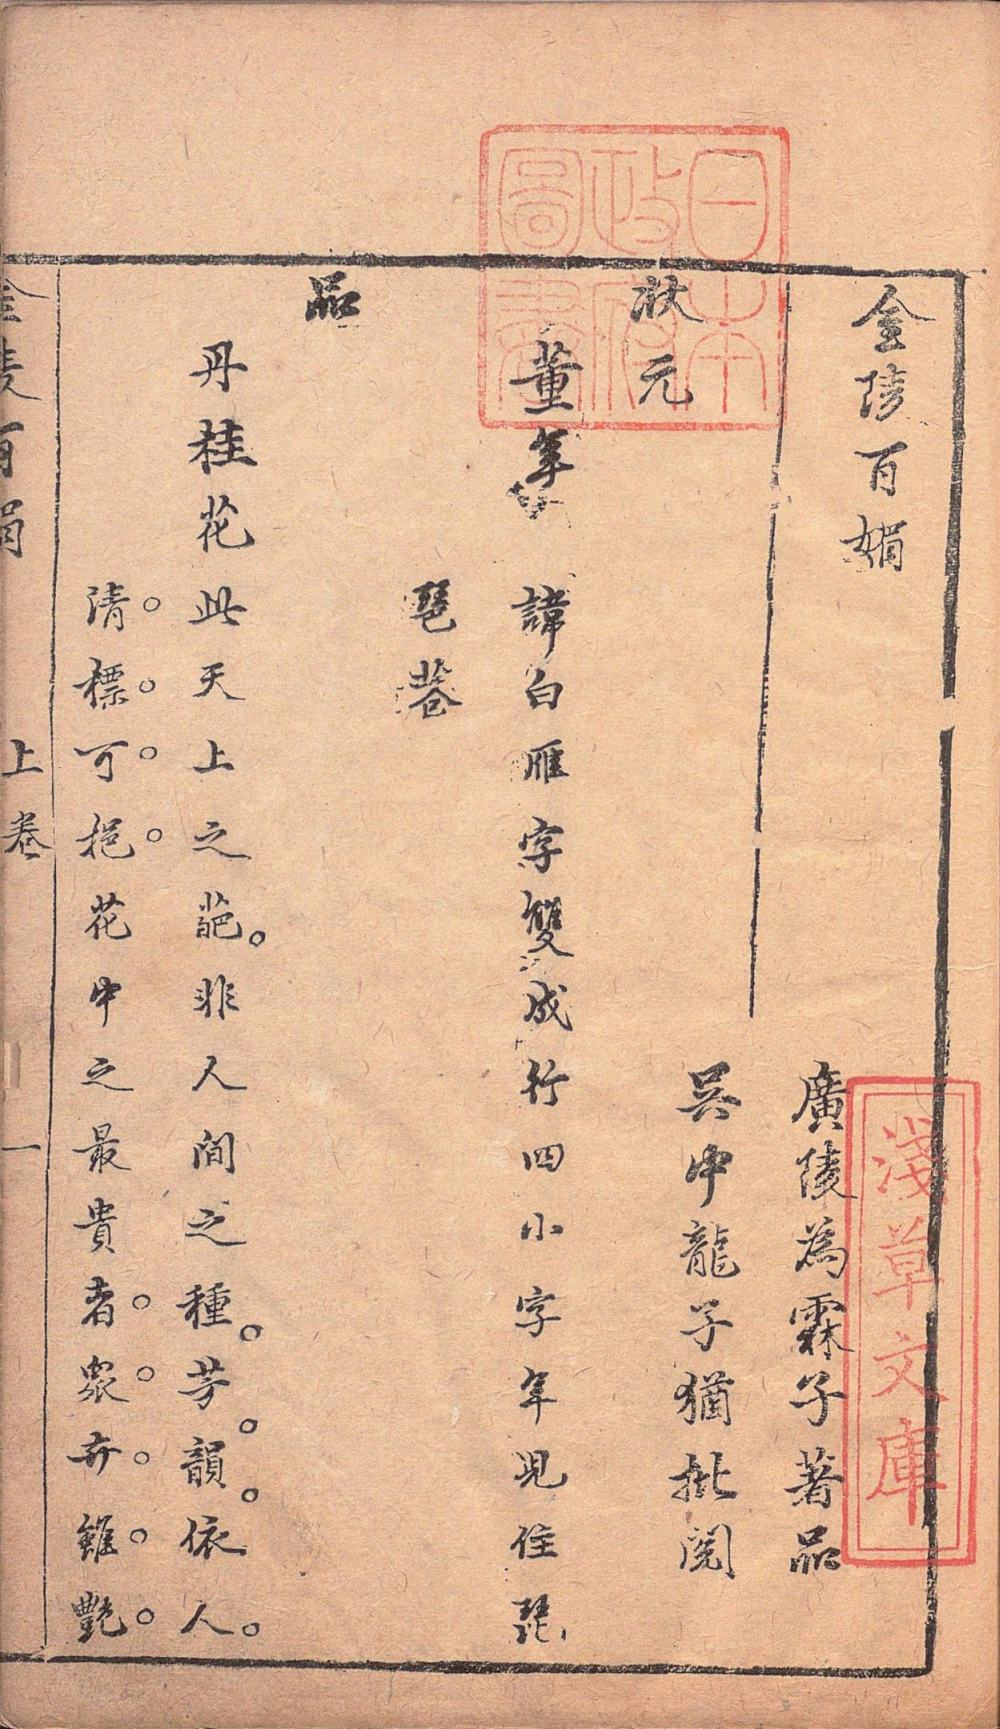 金陵百媚
廣陵為霖子著品
吳中龍子猶批閱
狀元
董年
諱白雁字雙成行四小字年兒住琵
琶巷
品
丹桂花
此天上之葩非人間之種芳韻依人
清標可挹花中之最貴者衆卉雖艷
金陵百媚
上卷
一
日本政府圖書
淺草文庫